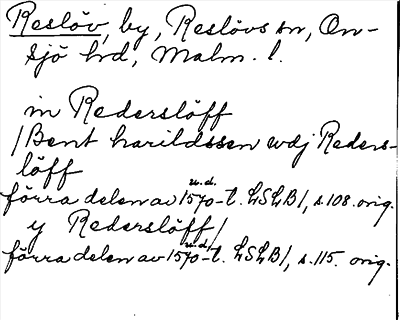 Reslöv, by, Reslövs sn, On-
sjö hd, Malm. l.
in Rederslöff
/Bent harildssen wdj Reders-
löff
förra delen av 1570-t. u.d. LSLB/, s. 108. orig.
y Rederslöff/
förra delen av 1570-t. u.d. LSLB/, s. 115. orig.